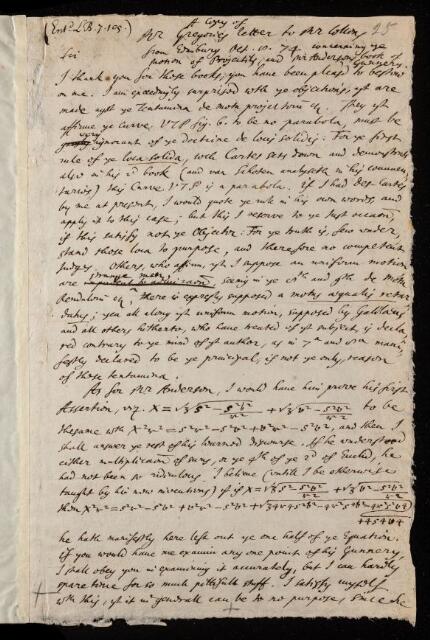 (Entd. L.B.7.105.) A Copy of 25
Mr Gregories letter to Mr Collins
from Edinburg Oct. 10. 74. concerning ye
Sir motion of Projectils, and Mr Andersons book of Gunnery.
I thank you for those books, you have been pleased to bestow
on me. I am exceedingly surprised with ye objections, yt are
made agst ye Tentamina de motu projectorum &c. They yt
affirme ye Curve, VTP fig. 6. to be no parabola, must be
very ignorant of ye doctrine de locis solidis. For ye first
rule of ye loca solida, wch Cartes sets down and demonstrats
also in his 2d book (and van Schoten analyseth in his commen-
taries) this Curve VTP is a parabola. If I had Des Cartes
by me at present, I would quote ye rule in his own words, and
apply it to this case; but this I reserve to ye next occasion,
if this satisfy not ye Objector. For ye truth is, few under-
stand those loca to purpose, and therefore no competent
Judges. Others who affirm, yt I suppose an uniform motion
are strange men; seeing in ye 8th and 9th de motu
penduloru &c, there is expressly supposed a motus aequaliter retar-
datus; yea all along yt uniform motion, supposed by Galilaeus
and all others hitherto, who have treated of yt subject, is decla-
red contrary to ye mind of yt author, as in 7th and mani-
festly declared to be ye principal, if not ye only, reason
of those tentamina.
As for Mr Anderson, I would have him prove his first
Assertion, viz. X = to be
the same wth and then I
shall answer ye rest of his learned discourse. If he understood
either multiplication of surds, or ye 4th of ye 2d of Euclid, he
had not been so ridiculous. I believe (untill I be otherwise
taught by his new inventions) yt if X =
then
he hath manifestly here left out ye one half of ye Equation.
If you would have me examin any one point of his Gunnery,
I shall obey you in examining it accurately, but I can hardly
spare time for so much pittifull stuff. I satisfy myself
with this, yt it in generall can be to no purpose, since he